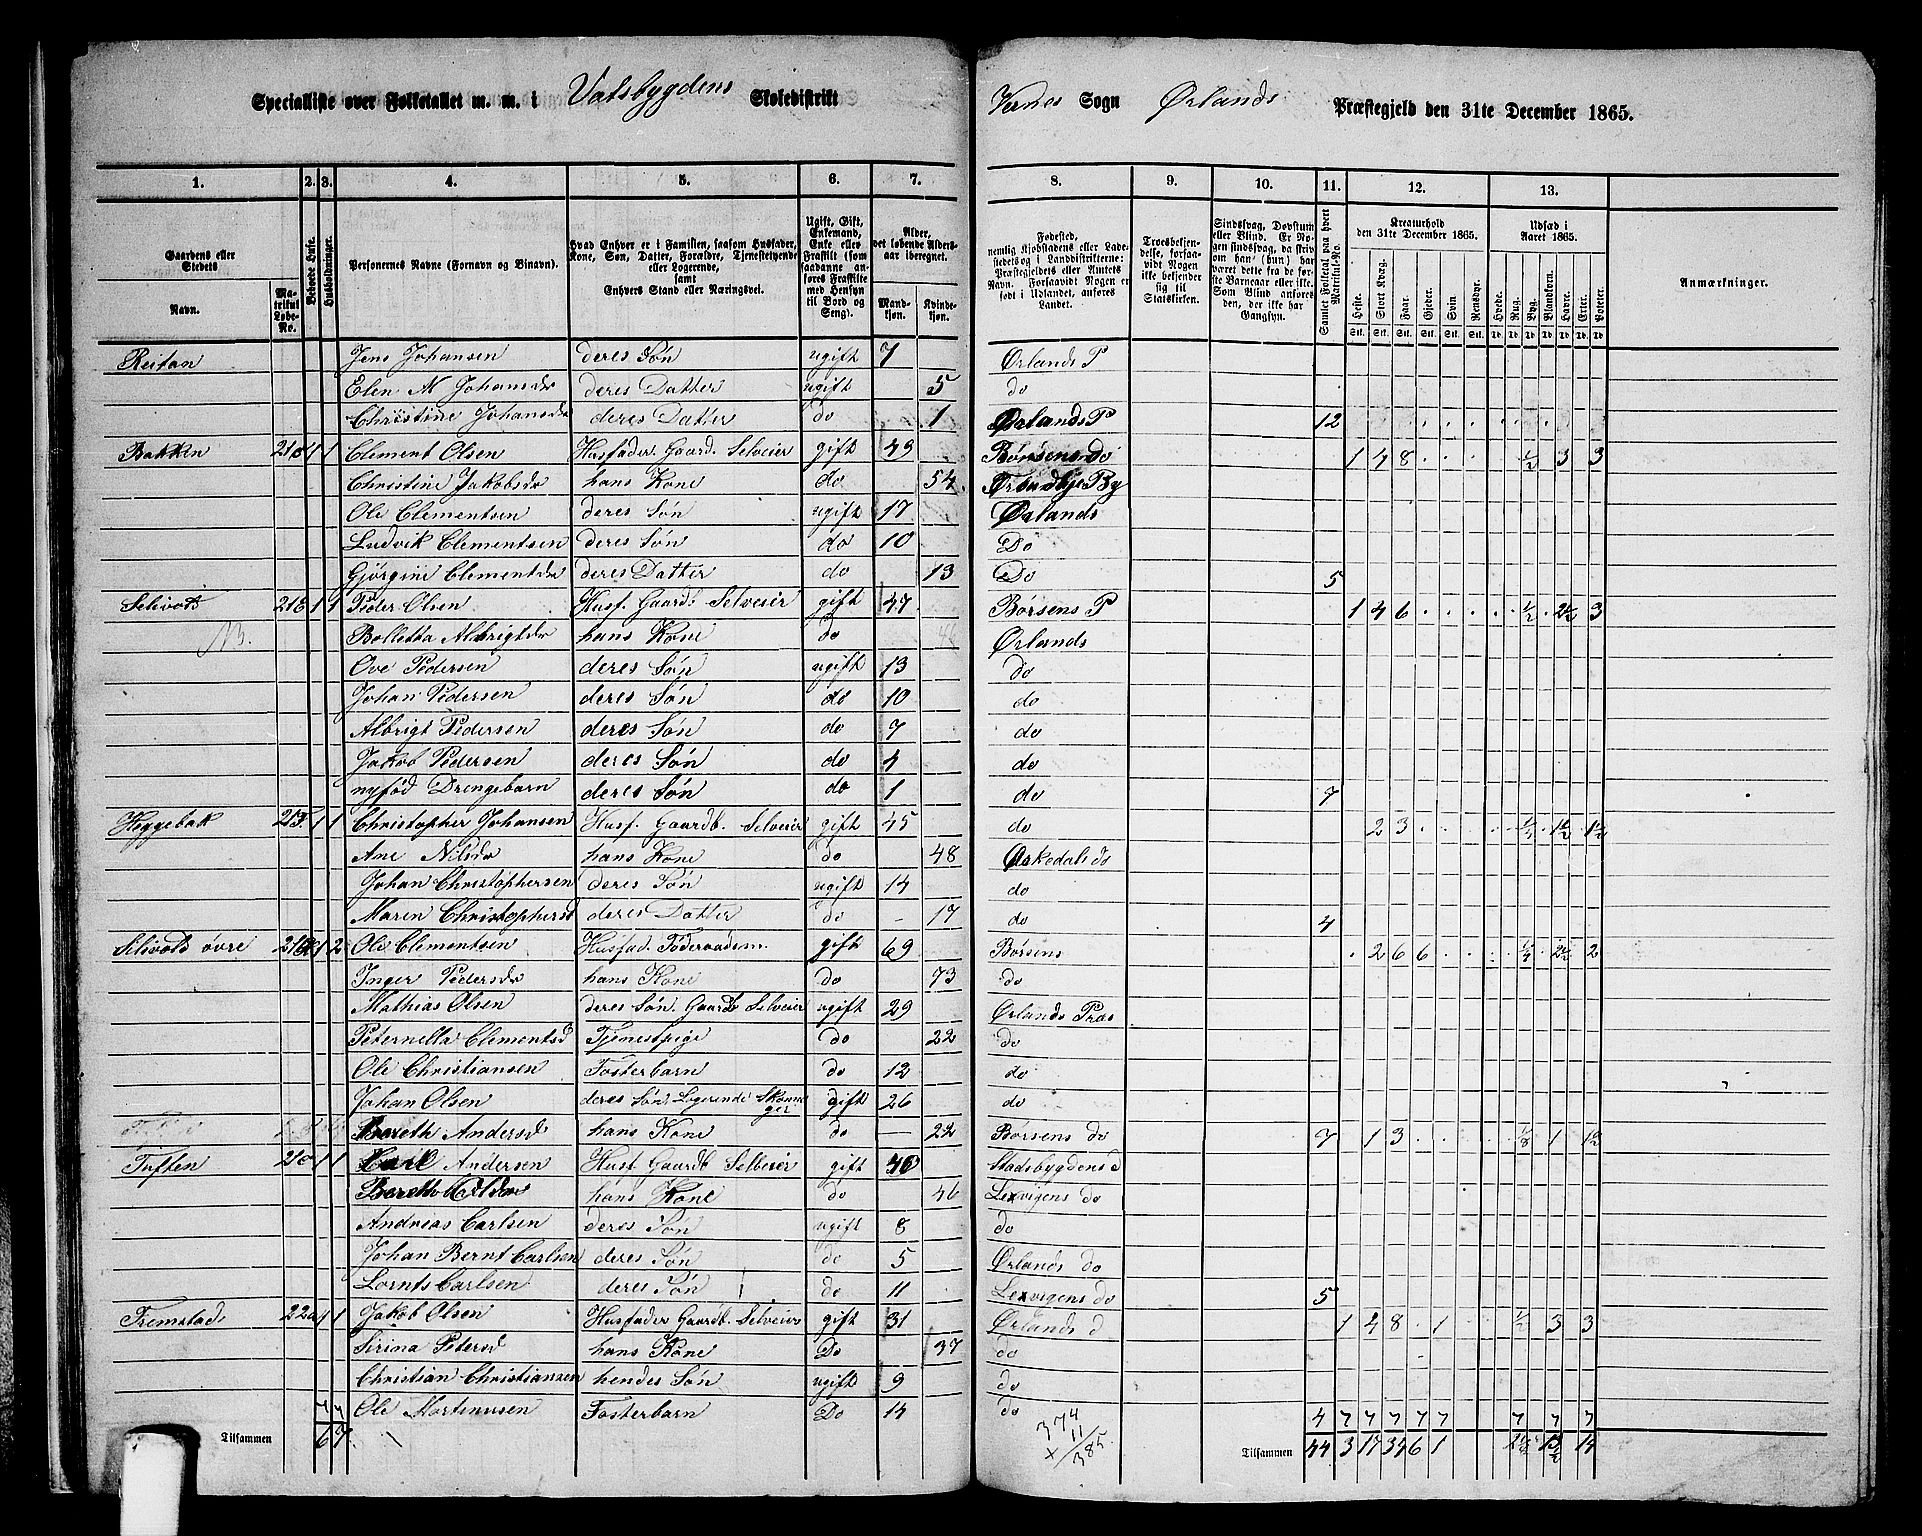 Specialliste over Folketallet m. m. i Valsbygdens Skoledistrikt Værnes Sogn Ørlands Præstegjeld den 31te December 1865.
1. 2. 3. 4. 5. 6. 7. 8. 9. 10. 11. 12. 13.
Gaardens eller Stedets Navn. Matrikul Løbe-No. Beboede Huse. Husholdninger. Personernes Navne (Fornavn og Binavn). Hvad Enhver er i Familien, saasom Husfader, Kone, Søn, Datter, Forældre, Tjenestetyende eller Logerende, samt Enhvers Stand eller Næringsvei. Ugift, Gift, Enkemand, Enke eller Fraskilt (som saadanne anføres Fraskilte med Hensyn til Bord og Seng). Alder, det løbende Aldersaar iberegnet. Mandkjøn. Kvindekjøn. Fødested, nemlig Kjøbstadens eller Ladestedets og i Landdistrikterne: Præstegjeldets eller Amtets Navn. Forsaavidt Nogen er født i Udlandet, anføres Landet. Troesbekjendelse, forsaavidt Nogen ikke bekjender sig til Statskirken. Sindssvag, Døvstum eller Blind. Er Nogen sindssvag, da skriv om han (hun) har været dette fra de første Barneaar eller ikke. Som Blind anføres den, der ikke har Gangsyn. Samlet Folketal paa hvert Matrikul-No. Kreaturhold den 31te December 1865. Heste. Stort Kvæg. Faar. Gjeder. Svin. Rensdyr. Udsæd i Aaret 1865. Hvede. Rug. Byg. Blandkorn. Havre. Erter. Poteter. Anmærkninger.
Reitan Jens Johansen deres Søn ugift 7 Ørlands P
Elen M Johansdr deres Datter ugift 5 do
Christine Johansdr deres Datter do 1 Ørlands P 12
Bakken 1 1 Clement Olsen Husfader Gaard. Selveier gift 49 Børsens do 1 4 8 ½ 3 3
Christine Jakobsdr hans Kone do 54
Ole Clementsen deres Søn ugift 17 Ørlands
Ludvik Clementsen deres Søn do 10 Do
Gjørgine Clementsdr deres Datter do 13 Do 5
1 1 Peder Olsen Husf. Gaardb Selveier gift 47 Børsens P 1 4 6 ½ 2½ 3
Bolletta Albrigtdr hans Kone do 46 Ørlands
Ove Pedersen deres Søn ugift 13 do
Johan Pedersen deres Søn do 10 do
Albrigt Pedersen deres Søn do 7 do
Jakob Pedersen deres Søn do 4 do
nyfød Drengebarn deres Søn do 1 do 7
Heggebak 1 1 Christopher Johansen Husf. Gaardb. Selveier gift 45 do 2 3 ½ 1½ 1½
Ane Nilsdr hans Kone do 48 do
Johan Christophersen deres Søn ugift 14 do
Maren Christophersd deres Datter do - 17 do 4
øvre 1 2 Ole Clementsen Husfad. Føderaadsm. gift 69 Børsens 2 6 6 2½ 2
Inger Pedersdr hans Kone do 73 do
Mathias Olsen deres Søn. Gaardb Selveier ugift 29 Ørlands Præs
Peternella Clementsd Tjenestpige do 22 do
Ole Christiansen Fosterbarn do 12 do
Johan Olsen deres Søn. Logerende gift 26 do
Bereth Andersd hans Kone do - 22 Børsens do 7 1 3 ⅛ 1 1½
Tuften 1 1 Andersen Husf Gaardb Selveier gift 40 Stadsbygdens
hans Kone do 46 Lexvigens do
Andreas Carlsen deres Søn ugift 8 do
Johan Bernt Carlsen deres Søn do 5 Ørlands do
Lornts Carlsen deres Søn do 11 Lexvigens do 5
Fremstad 1 1 Jakob Olsen Husfader Gaardb. Selveier gift 31 Ørlands d 1 4 8 1 ½ 3 3
Sirina Petersd hans Kone Do 37 do
Christian Christiansen hendes Søn ugift 9 do
Ole Mortinusen Fosterbarn Do 14 do 4 7 7 7 7 7 7 7 7
7 7
Tilsammen 6 7 374 11 385 Tilsammen 44 3 17 34 6 1 2½ 13½ 14